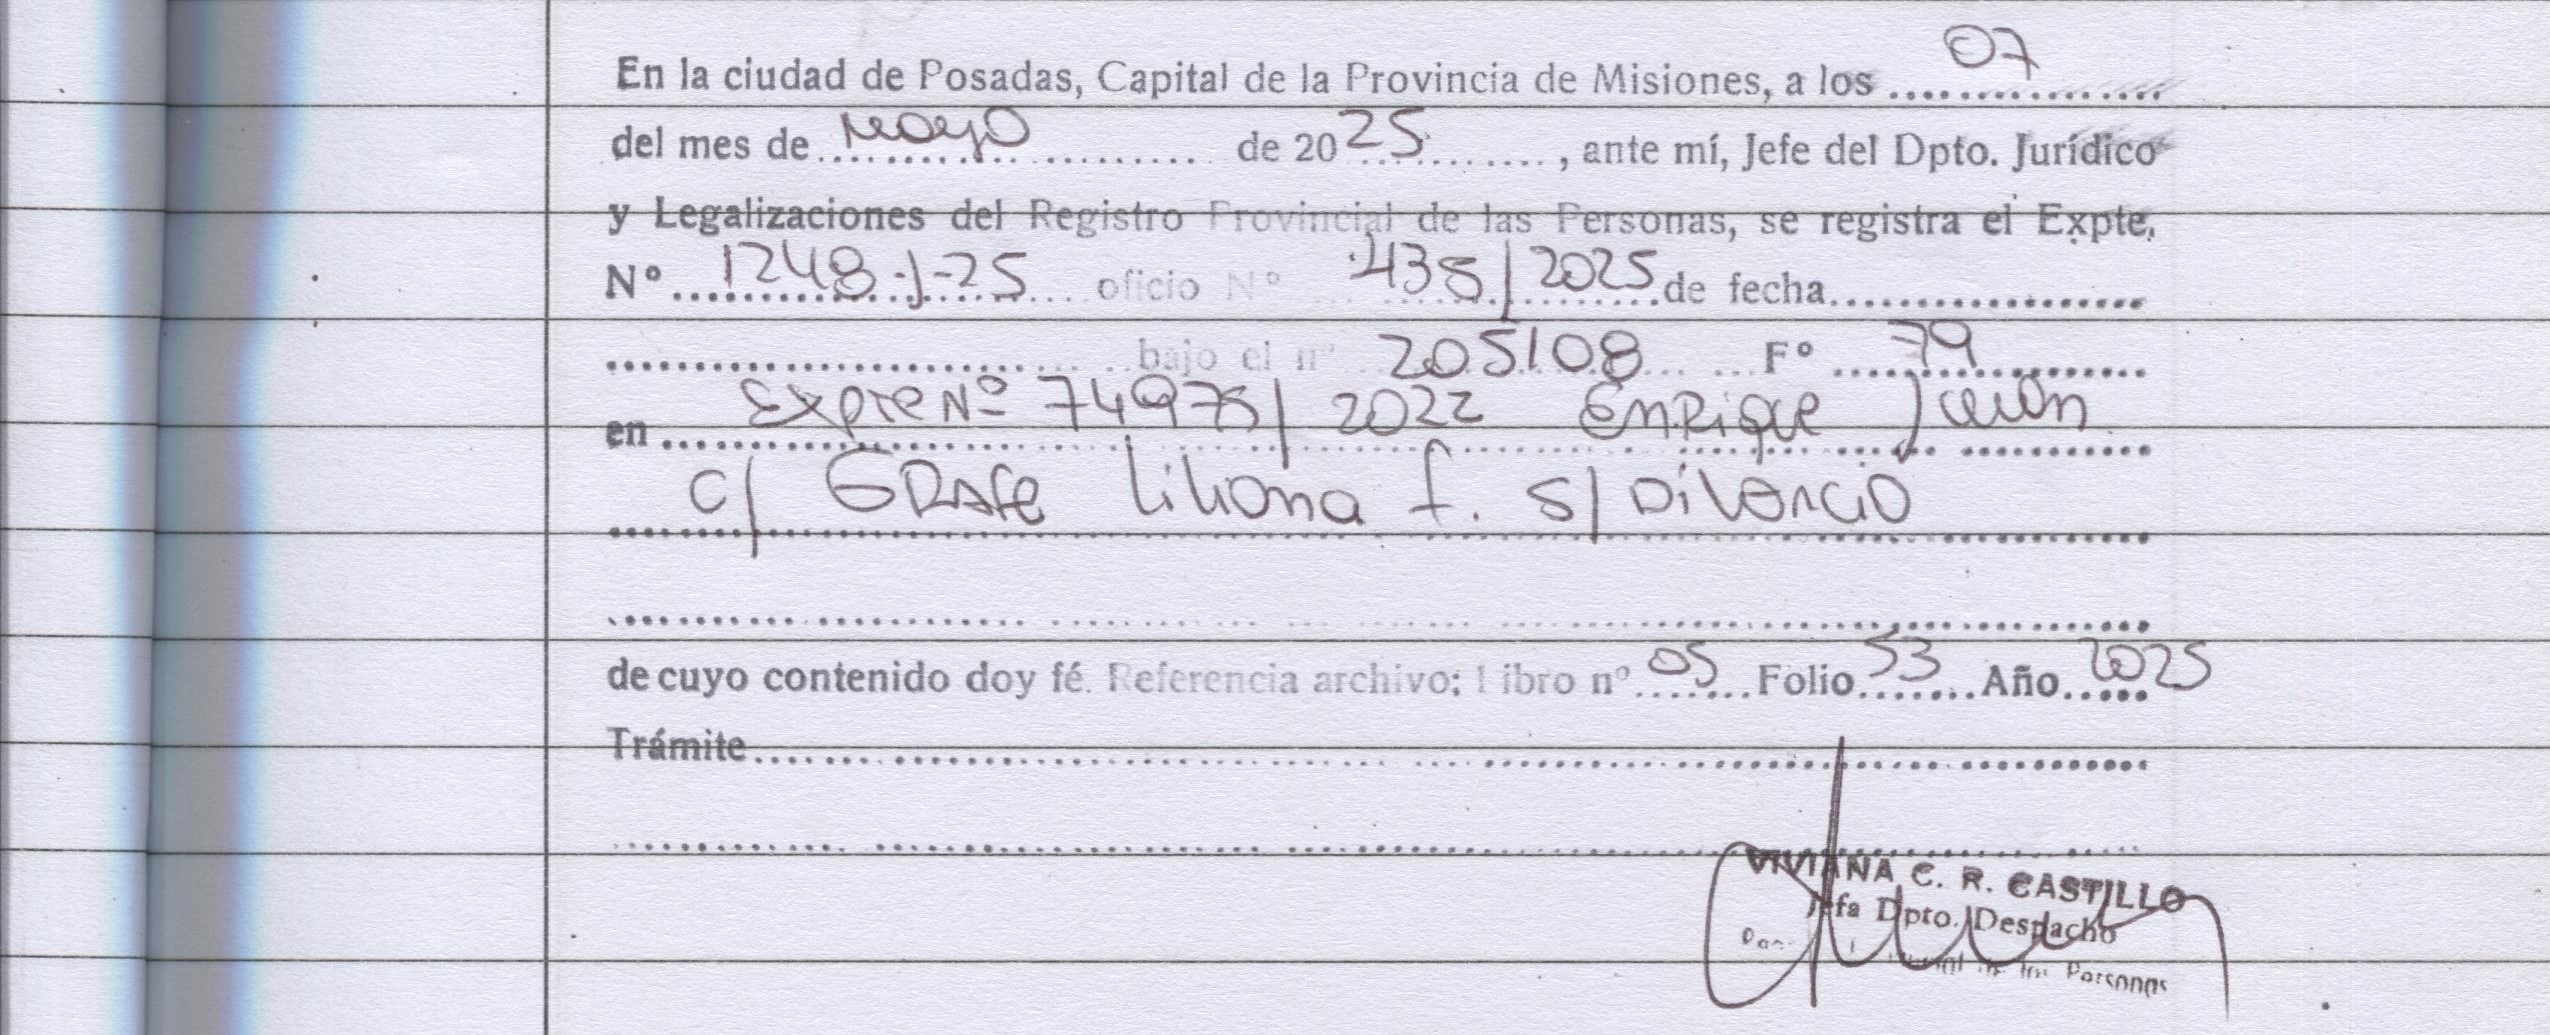 En la ciudad de Posadas, Capital de la Provincia de Misiones, a los 07
del mes de Mayo de 2025, ante mí, Jefe del Dpto. Jurídico
y Legalizaciones del Registro Provincial de las Personas, se registra el Expte.
Nº 1248-J-25 oficio Nº 435/2025 de fecha
bajo el nº 205108 Fº 79
en Expte Nº 74975/2022 Enrique
c/ GRAfe Liliana f. s/ Divorcio
de cuyo contenido doy fé. Referencia archivo; Libro nº 05 Folio 53 Año 2025
Trámite
VIVIANA C. R. CASTILLO
Jefa Dpto. Despacho
de las Personas